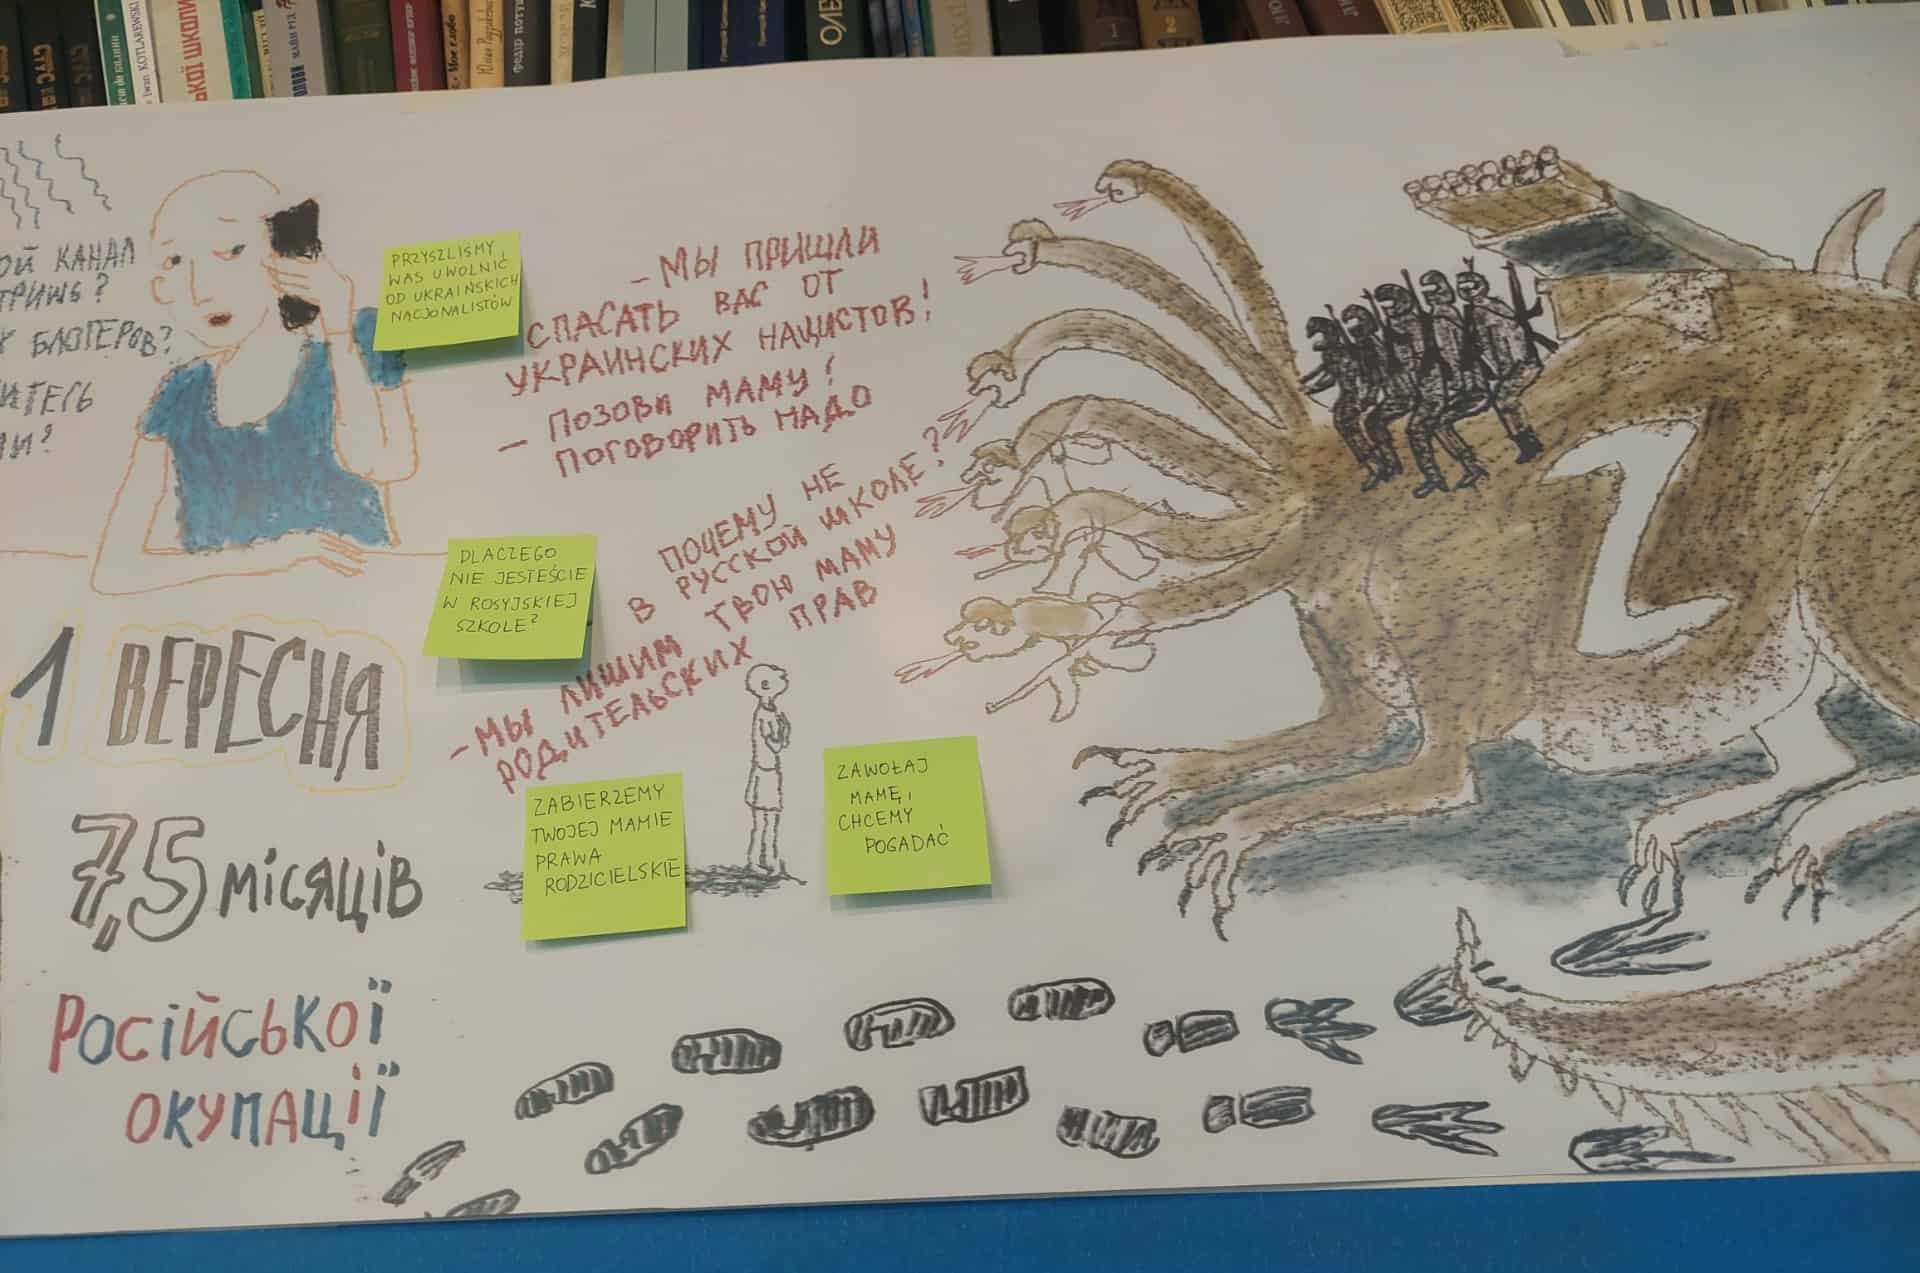 Iwan KOTLAREWSKI
КАНАЛ
БЛОГЕРОВ?
PRZYSZLIŚMY
WAS UWOLNIĆ
OD UKRAIŃSKICH
NACJONALISTÓW
- МЫ ПРИШЛИ
СПАСАТЬ ВАС ОТ
УКРАИНСКИХ НАЦИСТОВ!
- ПОЗОВИ МАМУ!
ПОГОВОРИТЬ НАДО
DLACZEGO
NIE JESTEŚCIE
W ROSYJSKIEJ
SZKOLE?
ПОЧЕМУ НЕ
В РУССКОЙ ШКОЛЕ?
- МЫ ЛИШИМ ТВОЮ МАМУ
РОДИТЕЛЬСКИХ ПРАВ
1 ВЕРЕСНЯ
ZABIERZEMY
TWOJEJ MAMIE
PRAWA
RODZICIELSKIE
ZAWOŁAJ
MAMĘ,
CHCEMY
POGADAĆ
7,5 місяців
Російської
окупації